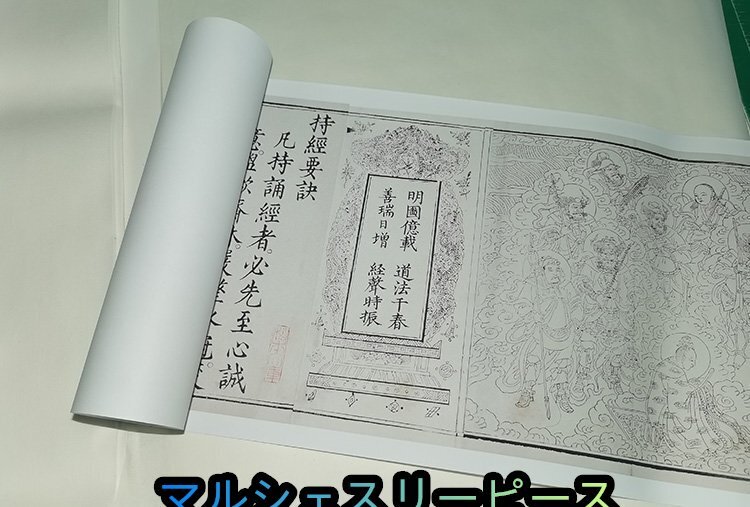 明圖億載　道法千春
善瑞日增　経聲時振
持經要訣
凡持誦經者。必先至心誠
マルシェスリーピース